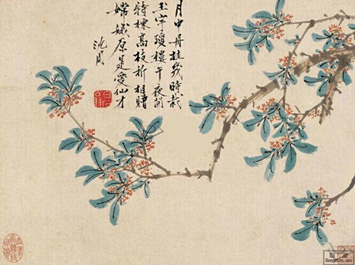 月中丹桂幾時栽
玉宇瓊樓午夜開
特標高枝折相贈
嫦娥原是愛仙才
沈周